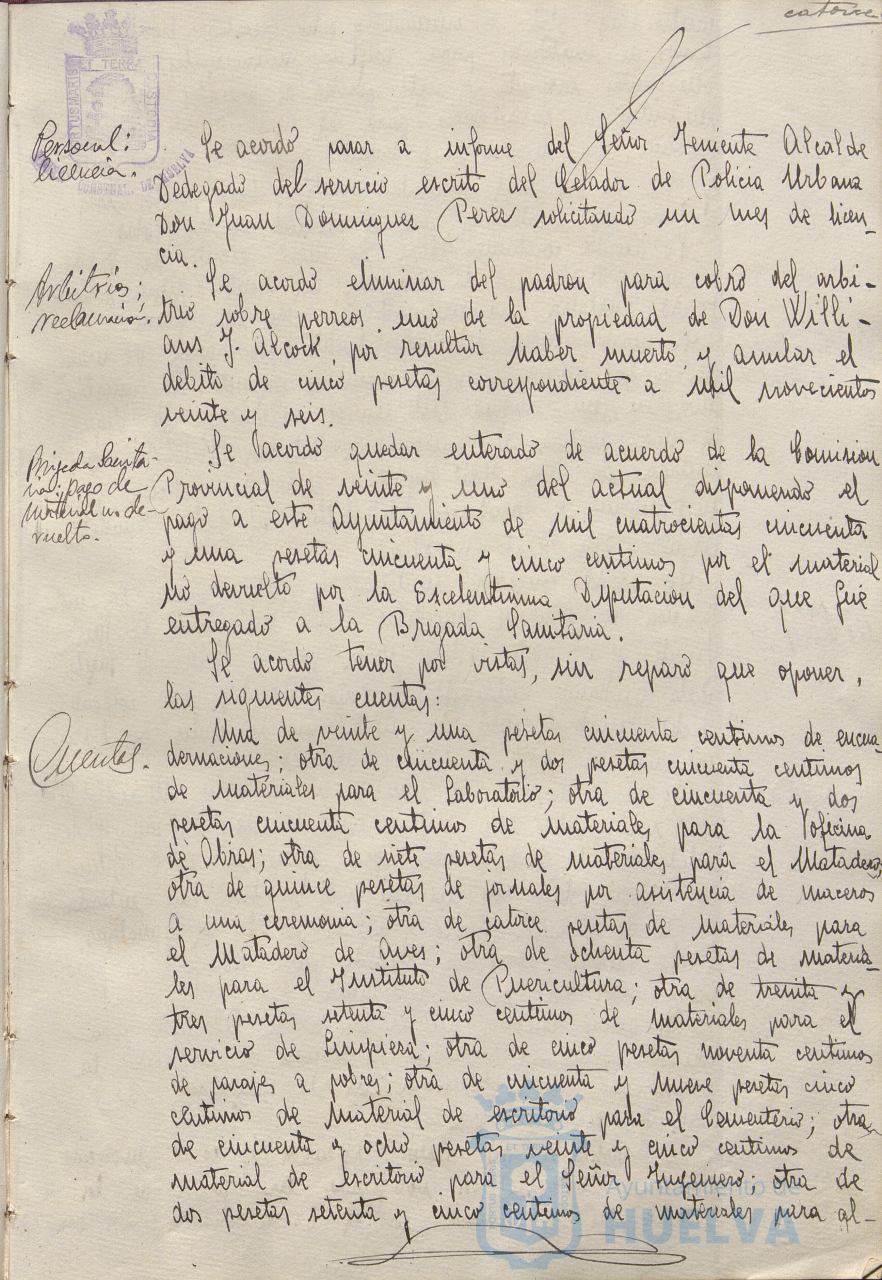 catorce
ET TERRA
PORTUS MARIS
CUSTODIA
DE HUELVA
Personal:
licencia.
Se acordó pasar a informe del Señor Teniente Alcalde
Dedegado del servicio escrito del Celador de Policia Urbana
Don Juan Dominguez Perez solicitando un mes de licen-
cia.
Arbitrios;
reclamación.
Se acordo eliminar del padron para cobro del arbi-
trio sobre perreos, uno de la propiedad de Don Willi-
ans J. Alcock, por resultar haber muerto, y anular el
debito de cinco pesetas correspondiente a mil novecientos
veinte y seis.
Brigada Sanita-
ria: pago de
material no de-
vuelto.
Se acordo quedar enterado de acuerdo de la Comision
Provincial de veinte y uno del actual disponiendo el
pago a este Ayuntamiento de mil cuatrocientas cincuenta
y una pesetas cincuenta y cinco centimos por el material
no devuelto por la Excelentisima Diputacion del que fué
entregado a la Brigada Sanitaria.
Se acordo tener por vistas, sin reparo que oponer,
las siguientes cuentas:
Cuentas.
Una de veinte y una pesetas cincuenta centimos de encua-
dernaciones; otra de cincuenta y dos pesetas cincuenta centimos
de materiales para el Laboratorio; otra de cincuenta y dos
pesetas cincuenta centimos de materiales para la oficina
de Obras; otra de siete pesetas de materiales para el Matadero;
otra de quince pesetas de jornales por asistencia de maceros
a una ceremonia; otra de catorce pesetas de materiales para
el Matadero de Aves; otra de ochenta pesetas de materia-
les para el Instituto de Puericultura; otra de treinta y
tres pesetas setenta y cinco centimos de materiales para el
servicio de Limpieza; otra de cinco pesetas noventa centimos
de pasajes a pobres; otra de cincuenta y nueve pesetas cinco
centimos de material de escritorio para el Cementerio; otra
de cincuenta y ocho pesetas veinte y cinco centimos de
material de escritorio para el Señor Ingeniero; otra de
dos pesetas setenta y cinco centimos de materiales para al-
Ayuntamiento de
HUELVA